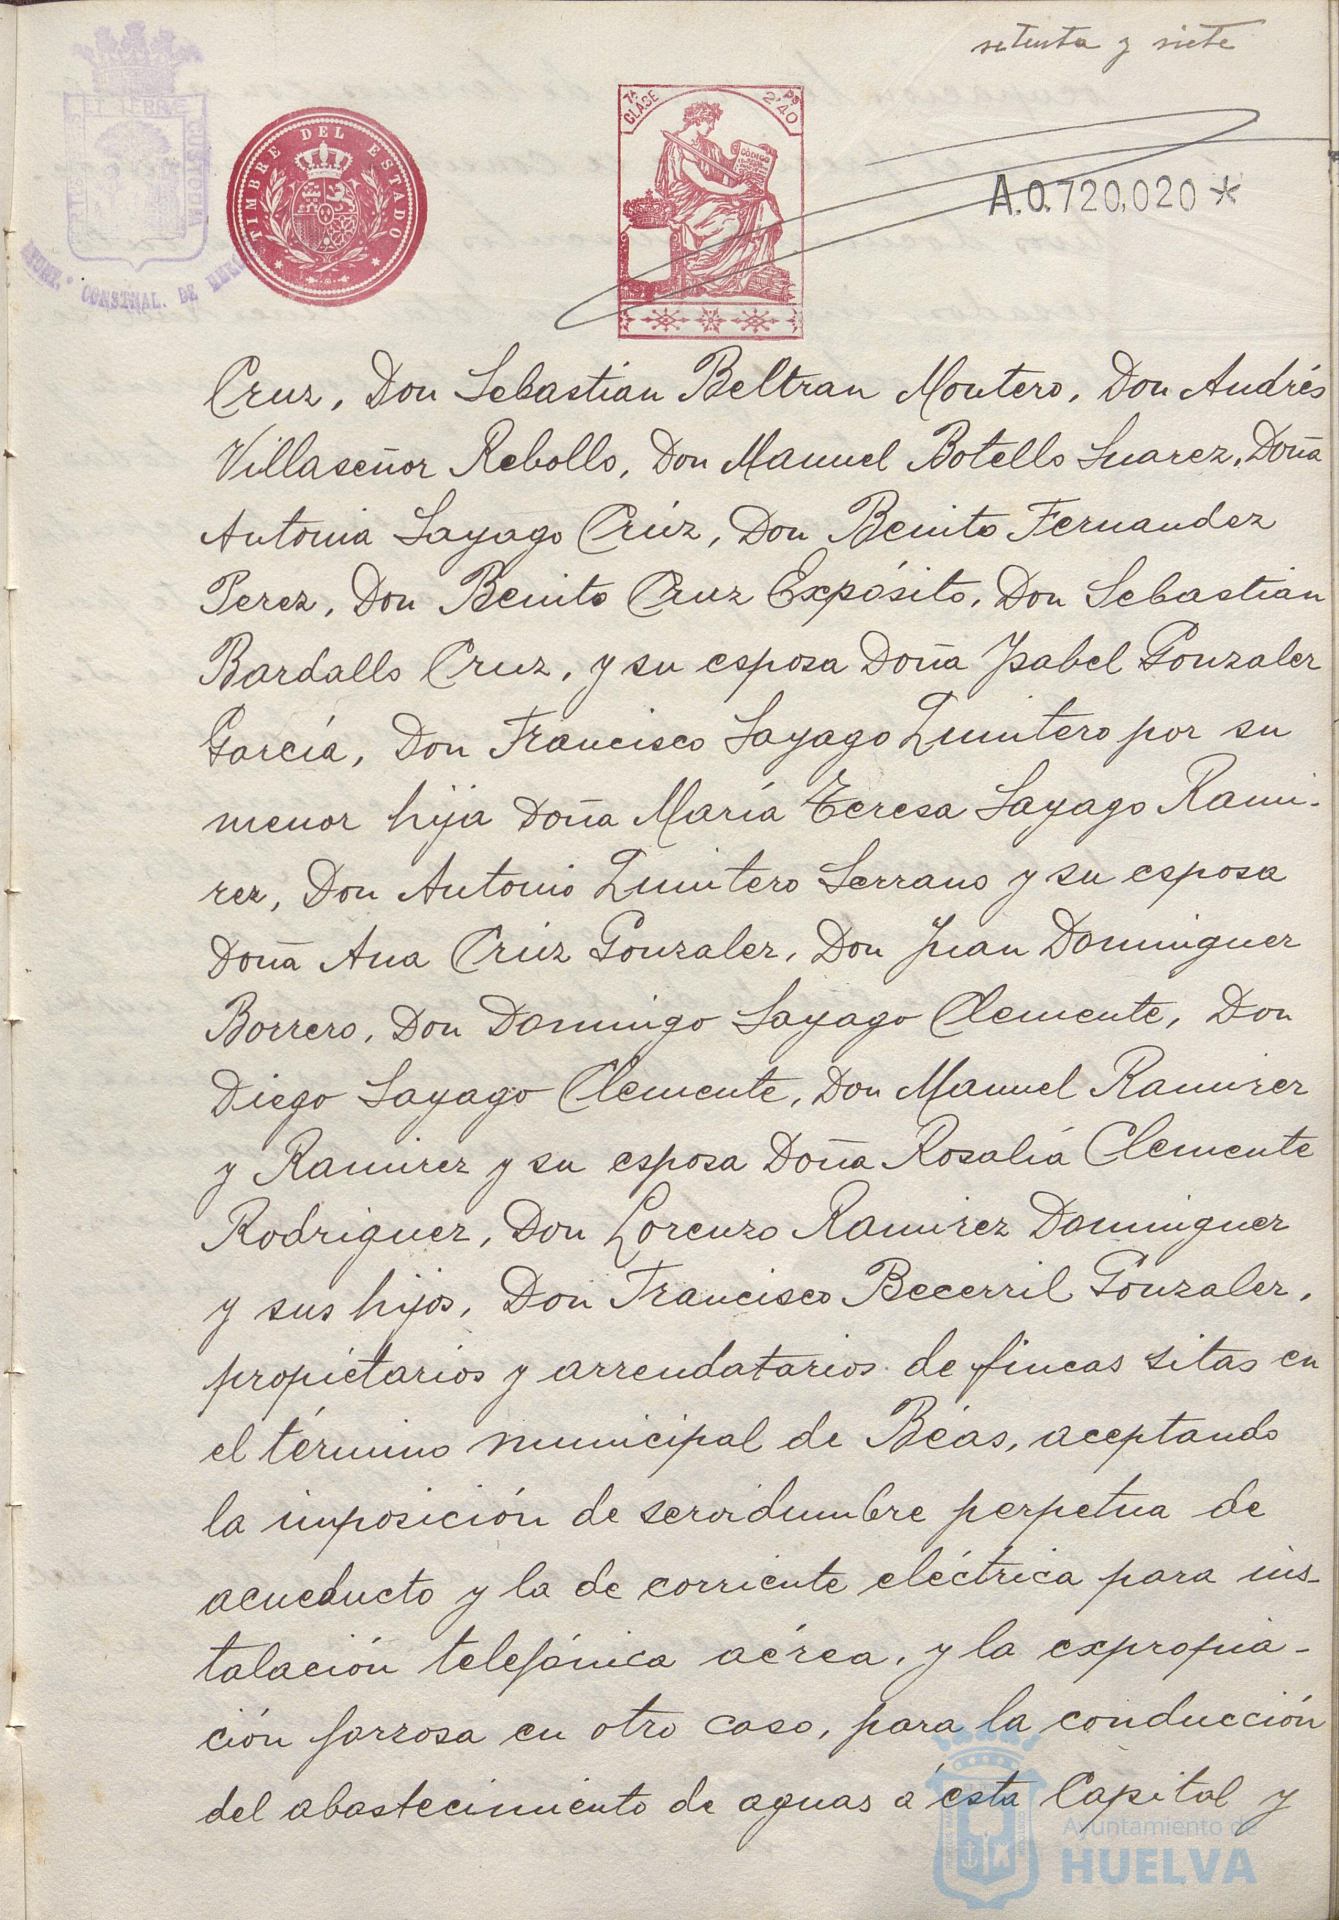 setenta y siete
TIMBRE DEL ESTADO
7ª CLASE
Ps 2'40
CODIGO
A.0.720,020*
CUSTODIA
CONSTNAL. DE
Cruz, Don Sebastian Beltran Montero, Don Andrés
Villaseñor Rebollo, Don Manuel Botello Suarez, Doña
Antonia Sayago Crúz, Don Benito Fernandez
Perez, Don Benito Cruz Expósito, Don Sebastián
Bardallo Cruz, y su esposa Doña Isabel Gonzalez
García, Don Francisco Sayago Quintero por su
menor hija Doña María Teresa Sayago Rami-
rez, Don Antonio Quintero Serrano y su esposa
Doña Ana Crúz Gonzalez, Don Juan Dominguez
Borrero, Don Domingo Sayago Clemente, Don
Diego Sayago Clemente, Don Manuel Ramirez
y Ramirez y su esposa Doña Rosalía Clemente
Rodriguez, Don Lorenzo Ramirez Dominguez
y sus hijos, Don Francisco Becerril Gonzalez,
propietarios y arrendatarios de fincas sitas en
el término municipal de Béas, aceptando
la imposición de servidumbre perpetua de
acueducto y la de corriente eléctrica para ins-
talación telefónica aérea, y la expropia-
ción forzosa en otro caso, para la conducción
del abastecimiento de aguas á esta Capital y
Ayuntamiento de
HUELVA